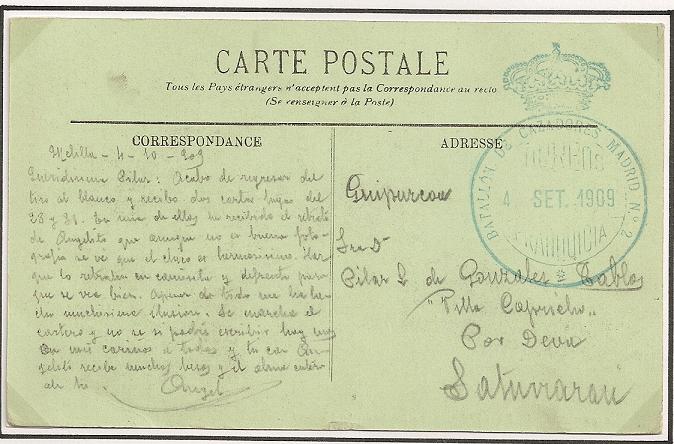 CARTE POSTALE
Tous les Pays étrangers n'acceptent pas la Correspondance au recto
(Se renseigner à la Poste)
CORRESPONDANCE
ADRESSE
BATALLÓN DE CAZADORES MADRID Nº 2
CORREOS
4 SET. 1909
FRANQUICIA
Melilla - 4 - 10 - 909
Queridisima Pilar: Acabo de regresar del
tiro al blanco y recibo dos cartas tuyas del
28 y 31. En una de ellas he recibido el retrato
de Angelito que aunque no es buena foto-
grafia se ve que el chico es hermosisimo. Haz
que lo retraten en camisita y de frente para
que se vea bien. Apesar de todo me ha he
cho muchisima ilusion. Se marcha el
cartero y no se si podré escribir hoy mas
Da mis cariños a todos y tu con An-
gelito recibe muchos besos y el alma entera
de tu
Angel
Guipuzcoa
Sra Dª
Pilar L. de Gonzalez Tablas
"Villa Capricho"
Por Deva
Saturraran